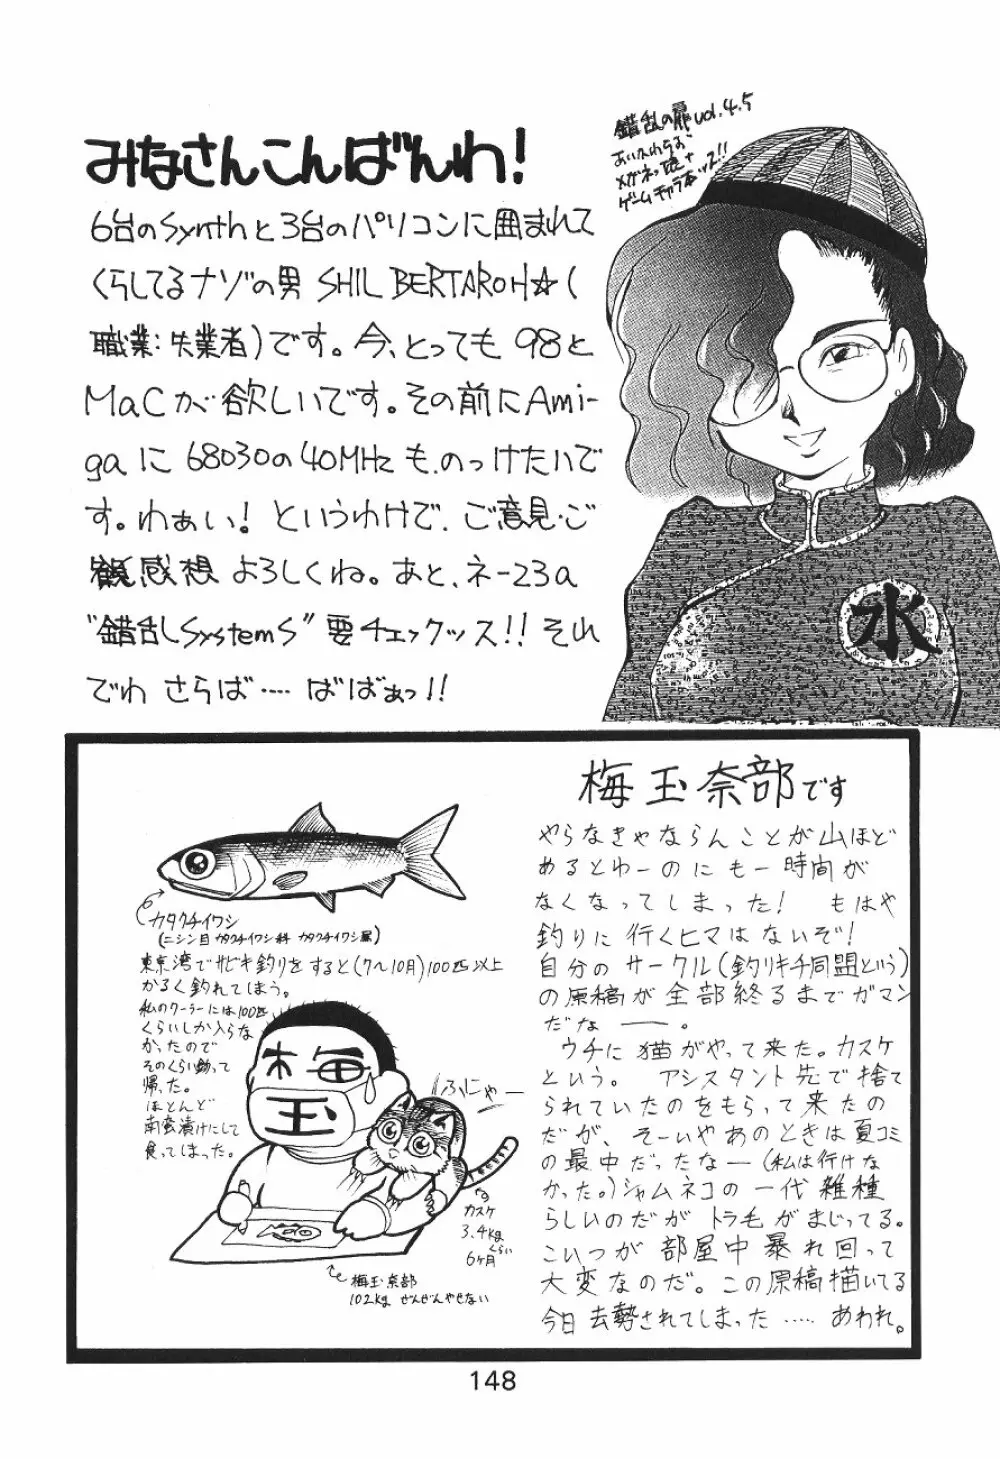 みなさんこんばんわ!
6台のSynthと3台のパソコンに囲まれて
くらしてるナゾの男 SHIL BERTAROH☆(
職業:失業者)です。今、とっても 98と
MaCが欲しいです。その前にAmi-
gaに 68030の40MHzも、のっけたいで
す。わぁい! というわけで、ご意見・ご
感想 よろしくね。あと、ネ-23a
"錯乱SystemS"要チェックッス!! それ
でわ さらば‥‥ ばばぁっ!!
錯乱の扉vol.4.5
あいかわらず
メガネっ娘+
ゲームキャラ本ッス!!
水
梅玉奈部です
やらなきゃならんことが山ほど
あるとゆーのにも一時間が
なくなってしまった! もはや
釣りに行くヒマはないぞ!
自分のサークル(釣りキチ同盟という)
の原稿が全部終るまでガマン
だなー。
ウチに猫がやって来た。カスケ
という。 アシスタント先で捨て
られていたのをもらって来たの
だが、そーいやあのときは夏コミ
の最中だったなー(私は行けな
かった。)シャムネコの一代雑種
らしいのだがトラ毛がまじってる。
こいつが部屋中暴れ回って
大変なのだ。この原稿描いてる
今日去勢されてしまった‥‥‥あわれ。
カタクチイワシ
(ニシン目カタクチイワシ科 カタクチイワシ属)
東京湾でサビキ釣りをすると(7〜10月)100匹以上
かるく釣れてしまう。
私のクーラーには100匹
くらいしか入らな
かったので
そのくらい釣って
帰った。
ほとんど
南蛮漬けにして
食ってしまった。
梅
玉
ふにゃー
カスケ
3.4kgくらい
6ヶ月
梅玉奈部
102kg ぜんぜんやせない
148